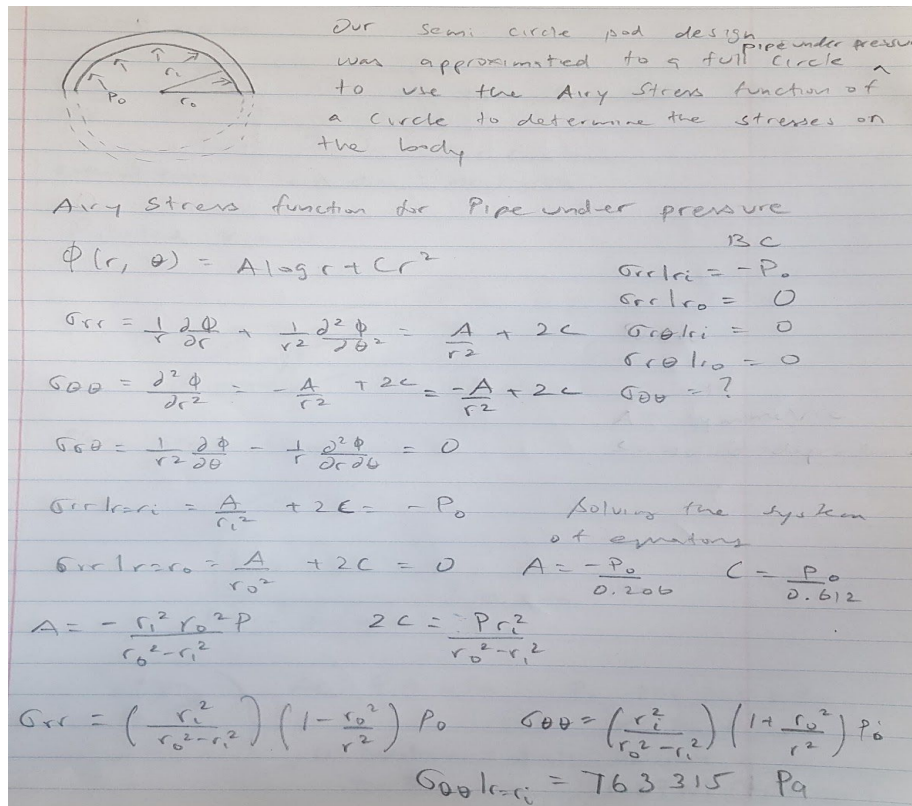 Our semi circle pod design
was approximated to a full circle ^ pipe under pressure
to use the Airy Stress function of
a circle to determine the stresses on
the body
P₀ rᵢ r₀
Airy Stress function for Pipe under pressure
BC
ϕ(r, θ) = A log r + Cr²
σrr|rᵢ = -P₀
σrr|r₀ = 0
σrr = 1/r ∂ϕ/∂r + 1/r² ∂²ϕ/∂θ² = A/r² + 2C
σrθ|rᵢ = 0
σrθ|r₀ = 0
σθθ = ∂²ϕ/∂r² = -A/r² + 2C = -A/r² + 2C
σθθ = ?
σrθ = 1/r² ∂ϕ/∂θ - 1/r ∂²ϕ/∂r∂θ = 0
σrr|r=rᵢ = A/rᵢ² + 2C = -P₀
Solving the system
of equatons
σrr|r=r₀ = A/r₀² + 2C = 0
A = -P₀/0.206
C = P₀/0.612
A = - rᵢ² r₀² P/(r₀² - rᵢ²)
2C = Prᵢ²/(r₀² - rᵢ²)
σrr = (rᵢ²/(r₀² - rᵢ²)) (1 - r₀²/r²) P₀
σθθ = (rᵢ²/(r₀² - rᵢ²)) (1 + r₀²/r²) P₀
σθθ|r=rᵢ = 763315 Pa